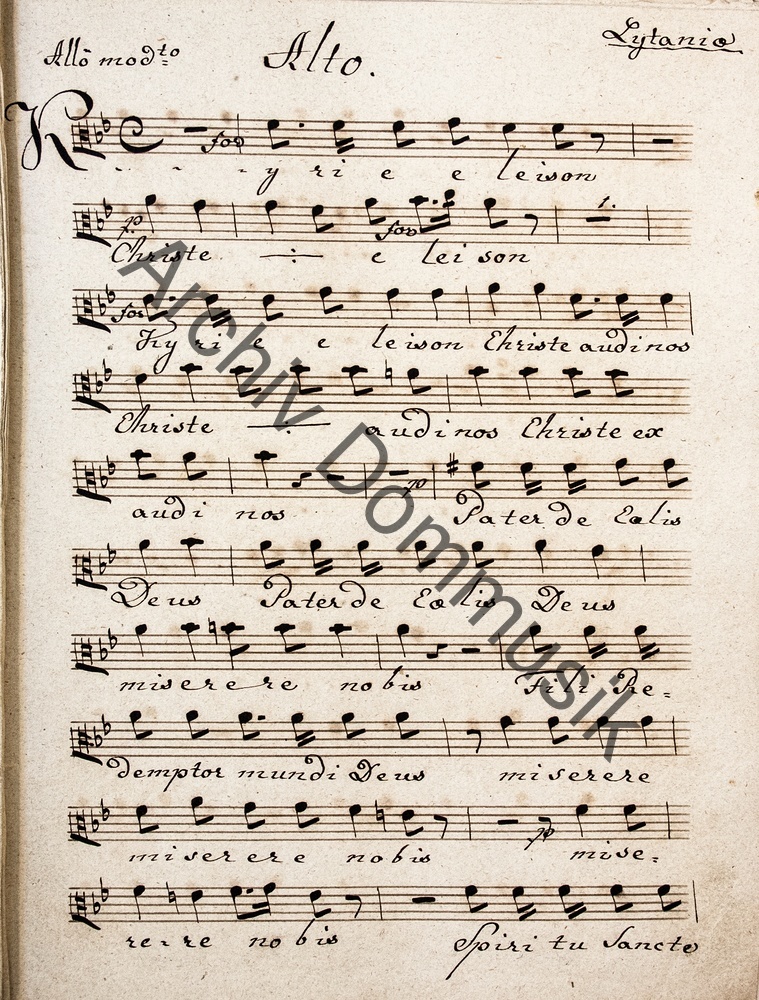 Lytanie
Allo modto Alto.
for
Ky ri e e leison
po for 1.
Christe ÷ e lei son
for
Ky ri e e leison Christe audi nos
Christe ÷ audi nos Christe ex
po
audi nos Pater de Cœlis
Deus Pater de Cœ lis Deus
miserere no bis Fili Re=
demptor mundi Deus miserere
po
miserere nobis mise=
re-re nobis Spiri tu Sancte
Archiv Dommusik